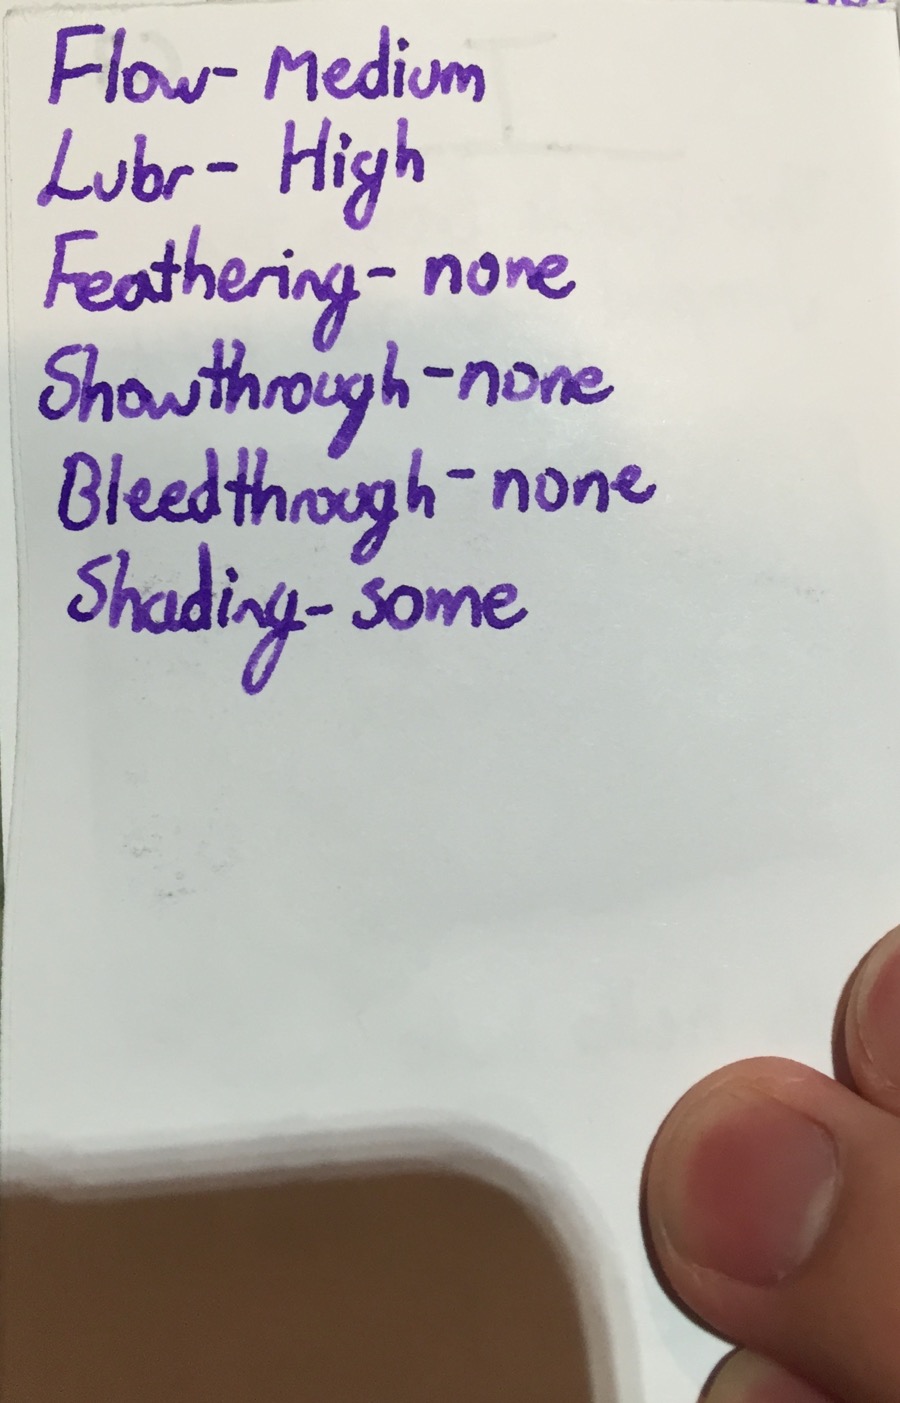 Flow- Medium
Lubr- High
Feathering- none
Showthrough-none
Bleedthrough-none
Shading- some